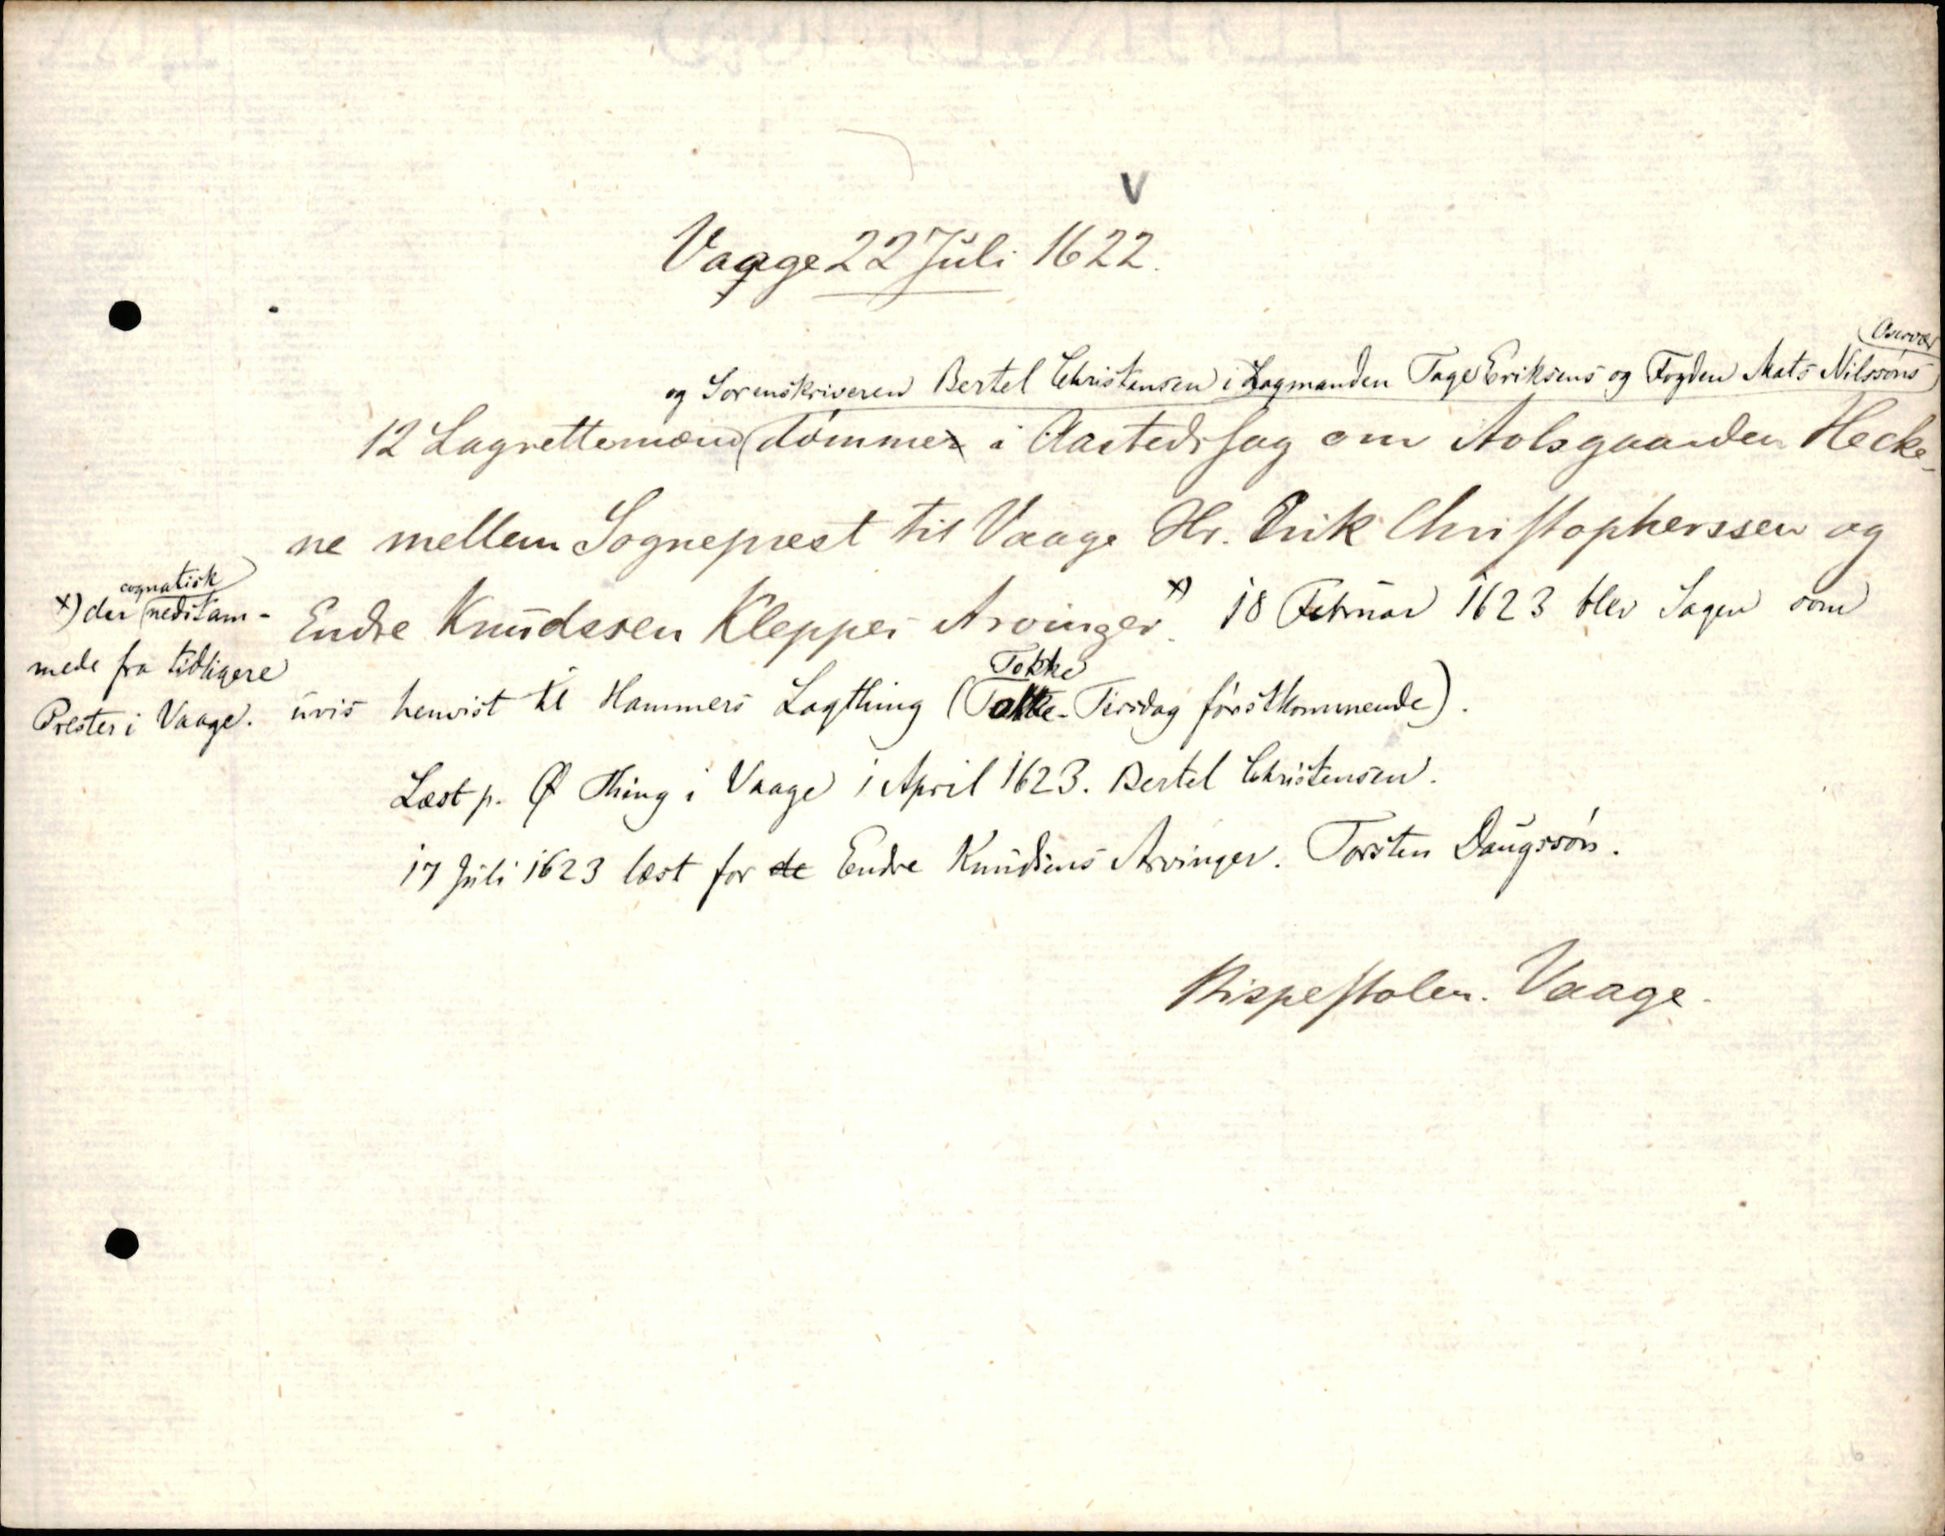 V
Vaage 22 Juli 1622.
Overvær
og Sorenskriveren Bertel Christensen i Lagmanden Tage Eriksens og Fogden Mats Nilssøns
12 Lagrettemænd dømmer i Aastedssag om Aolsgaarden Hecke-
ne mellem Sogneprest til Vaage Hr. Erik Christopherssen og
Endre Knudssen Kleppes Arvinger x). 18 Februar 1623 blev Sagen som
Tokke
uvis henvist til Hammers Lagthing (Tokke-Tirsdag førstkommende).
Læst p. Ø Thing i Vaage 1 April 1623. Bertel Christensen.
17 Juli 1623 læst for de Endre Knudsens Arvinger. Torsten Daugssøn.
Bispestolen. Vaage.
cognatisk
x) der nedstam-
mede fra tidligere
Prester i Vaage.